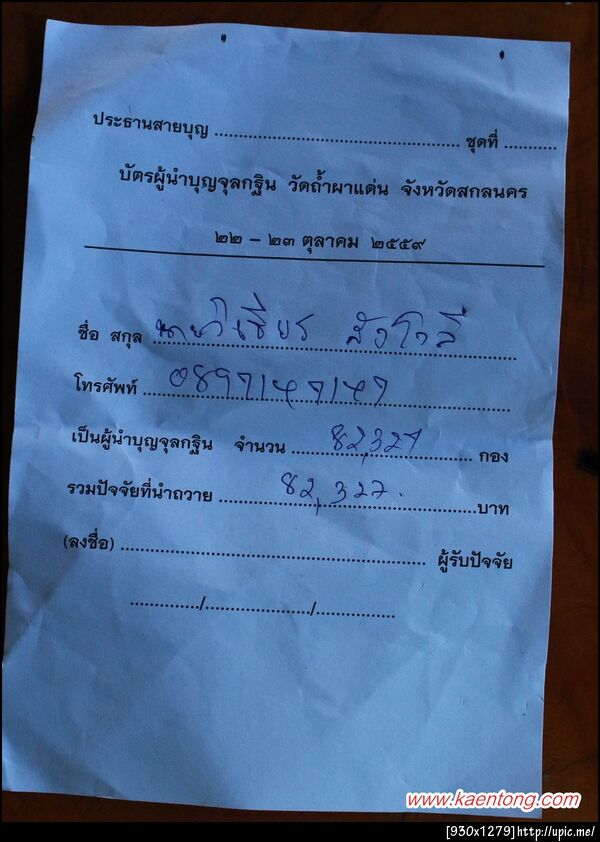 ประธานสายบุญ ........................................ ชุดที่ ..........
บัตรผู้นำบุญจุลกฐิน วัดถ้ำผาแด่น จังหวัดสกลนคร
๒๒ - ๒๓ ตุลาคม ๒๕๕๙
ชื่อ สกุล
โทรศัพท์
เป็นผู้นำบุญจุลกฐิน จำนวน 82,327 กอง
รวมปัจจัยที่นำถวาย 82,327. บาท
(ลงชื่อ) .................................................. ผู้รับปัจจัย
............../....................../................
www.kaentong.com
[930x1279]http://upic.me/